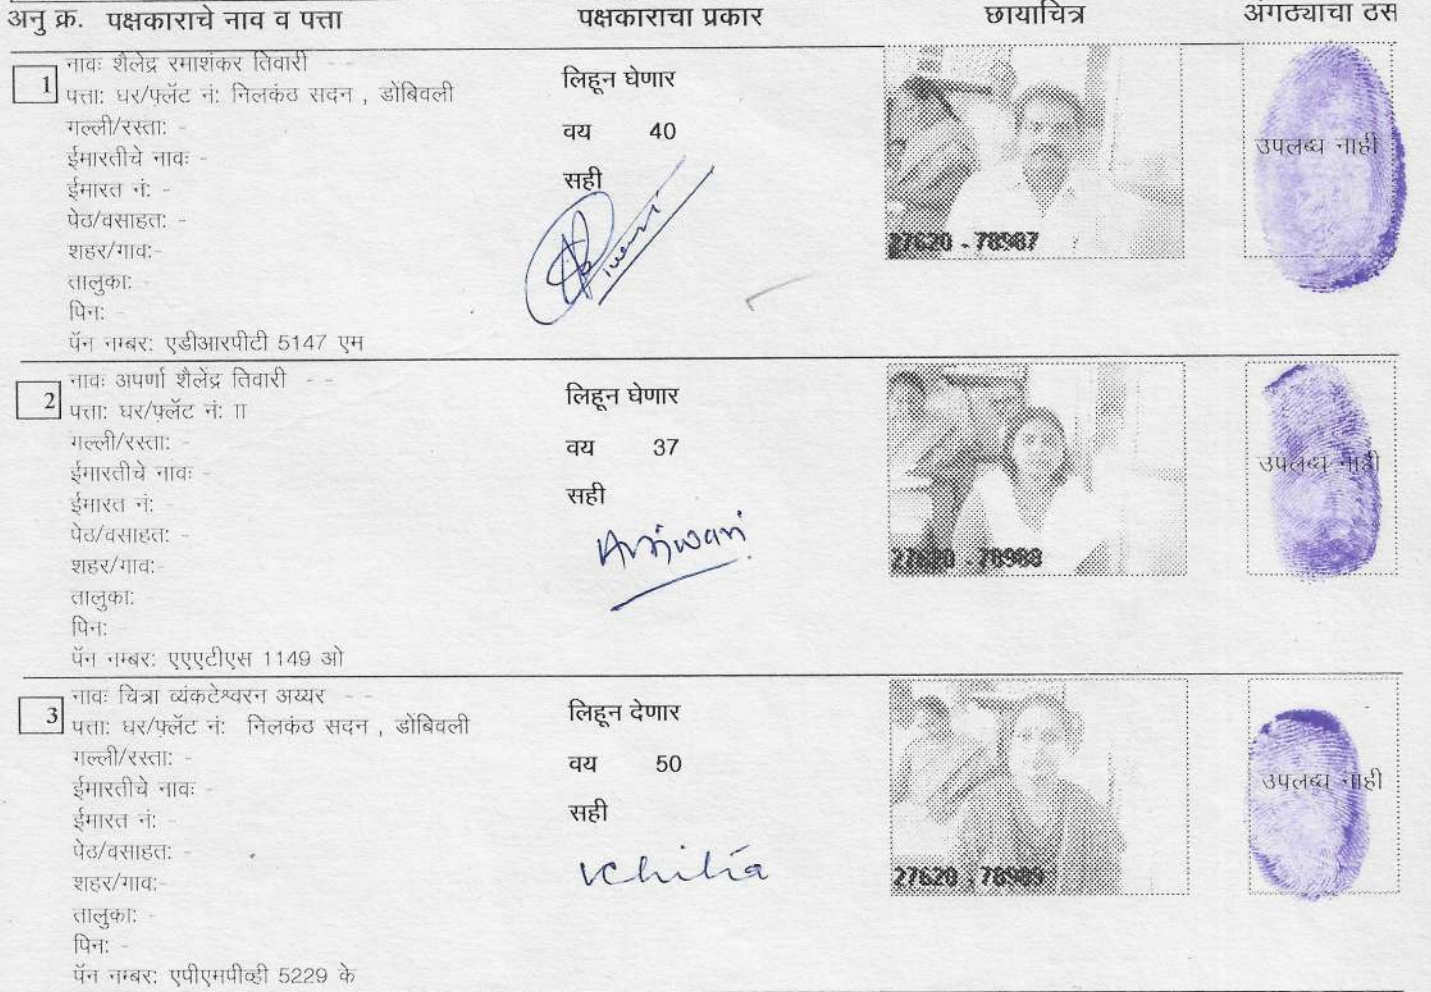 अनु क्र. पक्षकाराचे नाव व पत्ता पक्षकाराचा प्रकार छायाचित्र अंगठ्याचा ठस
1 नावः शैलेंद्र रमाशंकर तिवारी - -
पत्ता: घर/फ्लॅट नं: निलकंठ सदन , डोंबिवली
गल्ली/रस्ता: -
ईमारतीचे नावः -
ईमारत नं: -
पेठ/वसाहत: -
शहर/गाव:-
तालुका: -
पिन: -
पॅन नम्बर: एडीआरपीटी 5147 एम
लिहून घेणार
वय 40
सही
27620 - 78987
उपलब्ध नाही
2 नावः अपर्णा शैलेंद्र तिवारी - -
पत्ता: घर/फ्लॅट नं: ıı
गल्ली/रस्ता: -
ईमारतीचे नावः -
ईमारत नं: -
पेठ/वसाहत: -
शहर/गाव:-
तालुका: -
पिन: -
पॅन नम्बर: एएएटीएस 1149 ओ
लिहून घेणार
वय 37
सही
27620 - 78988
उपलब्ध नाही
3 नावः चित्रा व्यंकटेश्वरन अय्यर - -
पत्ता: घर/फ्लॅट नं: निलकंठ सदन , डोंबिवली
गल्ली/रस्ता: -
ईमारतीचे नावः -
ईमारत नं: -
पेठ/वसाहत: -
शहर/गाव:-
तालुका: -
पिन: -
पॅन नम्बर: एपीएमपीव्ही 5229 के
लिहून देणार
वय 50
सही
27620 - 78989
उपलब्ध नाही